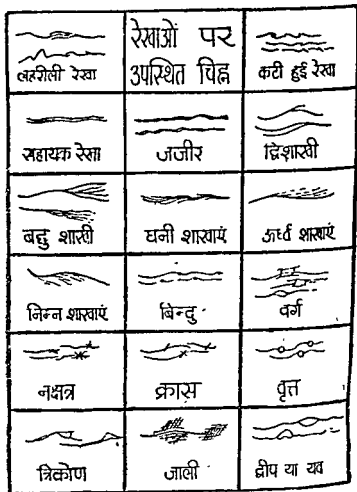 रेखाओं पर
उपस्थित चिह्न
लहरीली रेखा
कटी हुई रेखा
सहायक रेखा
जंजीर
द्विशाखी
बहु शाखी
घनी शाखाएं
ऊर्ध्व शाखाएं
निम्न शाखाएं
बिन्दु
वर्ग
नक्षत्र
क्रास
वृत्त
त्रिकोण
जाली
द्वीप या यव